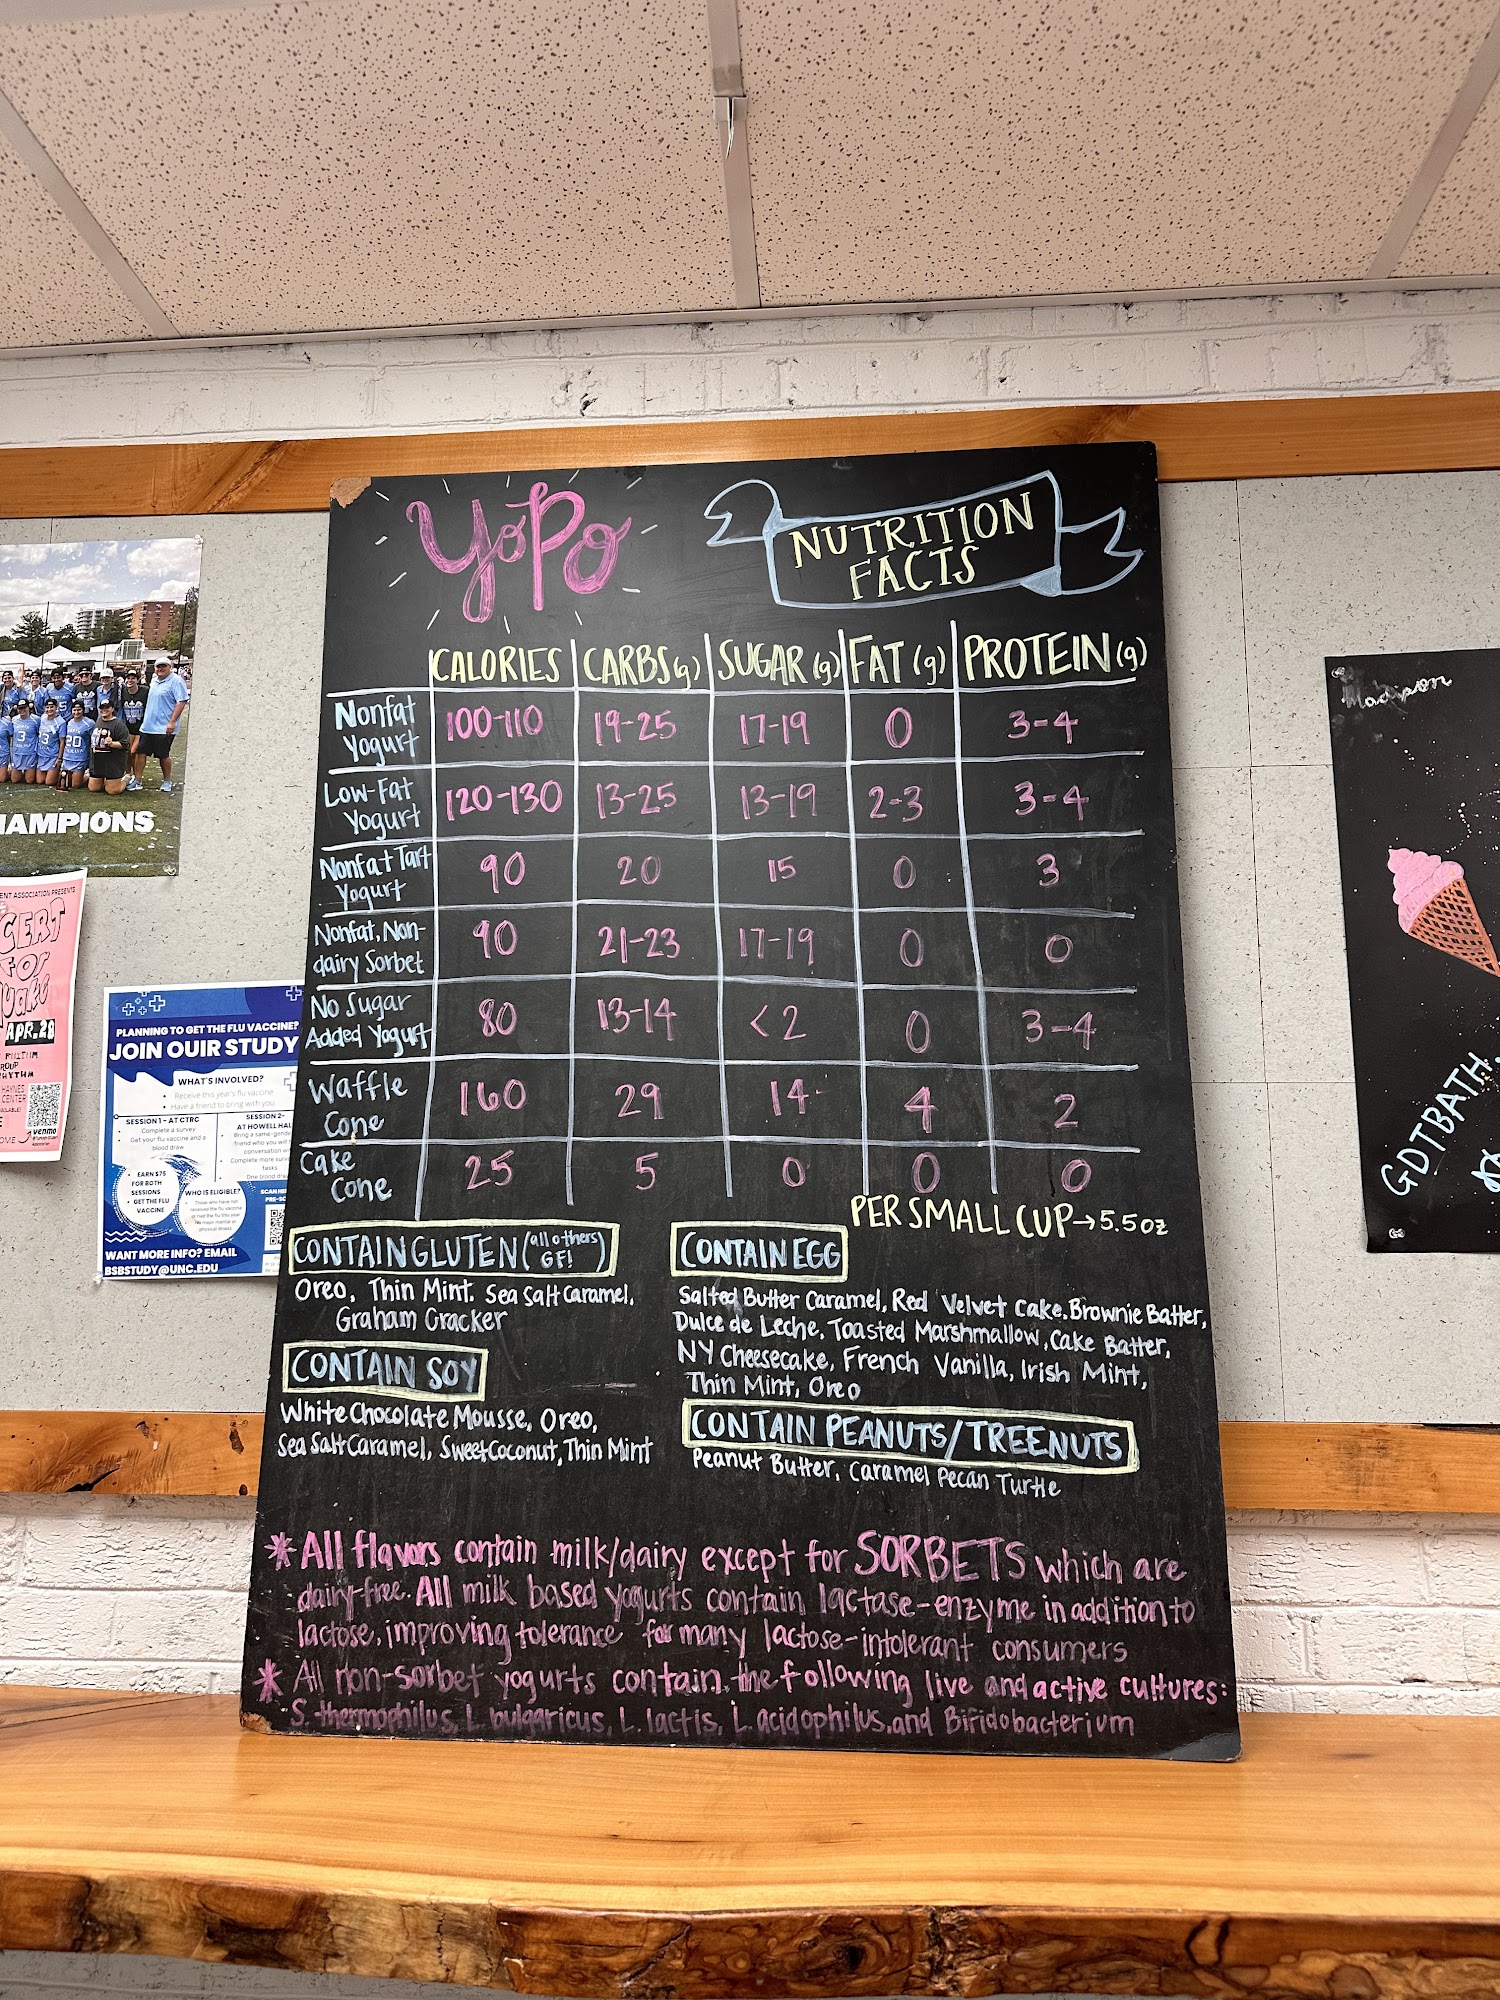 YoPo
NUTRITION
FACTS
CALORIES CARBS(g) SUGAR(g) FAT(g) PROTEIN(g)
Nonfat Yogurt 100-110 19-25 17-19 0 3-4
Low-Fat Yogurt 120-130 13-25 13-19 2-3 3-4
Nonfat Tart Yogurt 90 20 15 0 3
Nonfat, Non-dairy Sorbet 90 21-23 17-19 0 0
No Sugar Added Yogurt 80 13-14 <2 0 3-4
Waffle Cone 160 29 14 4 2
Cake Cone 25 5 0 0 0
PER SMALL CUP→5.5oz
CONTAIN GLUTEN (all others GF!)
Oreo, Thin Mint. Sea Salt Caramel,
Graham Cracker
CONTAIN SOY
White Chocolate Mousse, Oreo,
Sea Salt Caramel, Sweet Coconut, Thin Mint
CONTAIN EGG
Salted Butter Caramel, Red Velvet Cake, Brownie Batter,
Dulce de Leche, Toasted Marshmallow, Cake Batter,
NY Cheesecake, French Vanilla, Irish Mint,
Thin Mint, Oreo
CONTAIN PEANUTS/TREENUTS
Peanut Butter, Caramel Pecan Turtle
*All flavors contain milk/dairy except for SORBETS which are
dairy-free. All milk based yogurts contain lactase-enzyme in addition to
lactose, improving tolerance for many lactose-intolerant consumers
* All non-sorbet yogurts contain the following live and active cultures:
S. thermophilus, L. bulgaricus, L. lactis, L. acidophilus, and Bifidobacterium
HAMPIONS
ENT ASSOCIATION PRESENTS
CERT
FOR
APR. 28
HAYNES
CENTER
venmo
PLANNING TO GET THE FLU VACCINE?
JOIN OUIR STUDY
WHAT'S INVOLVED?
• Receive this year's flu vaccine
• Have a friend to bring with you
SESSION 1 - AT CTRC
Complete a survey
Get your flu vaccine and a
blood draw
SESSION 2-
AT HOWELL HAL
• EARN $75
FOR BOTH
SESSIONS
• GET THE FLU
VACCINE
WHO IS ELIGIBLE?
WANT MORE INFO? EMAIL
BSBSTUDY@UNC.EDU
Madison
GDTBATH